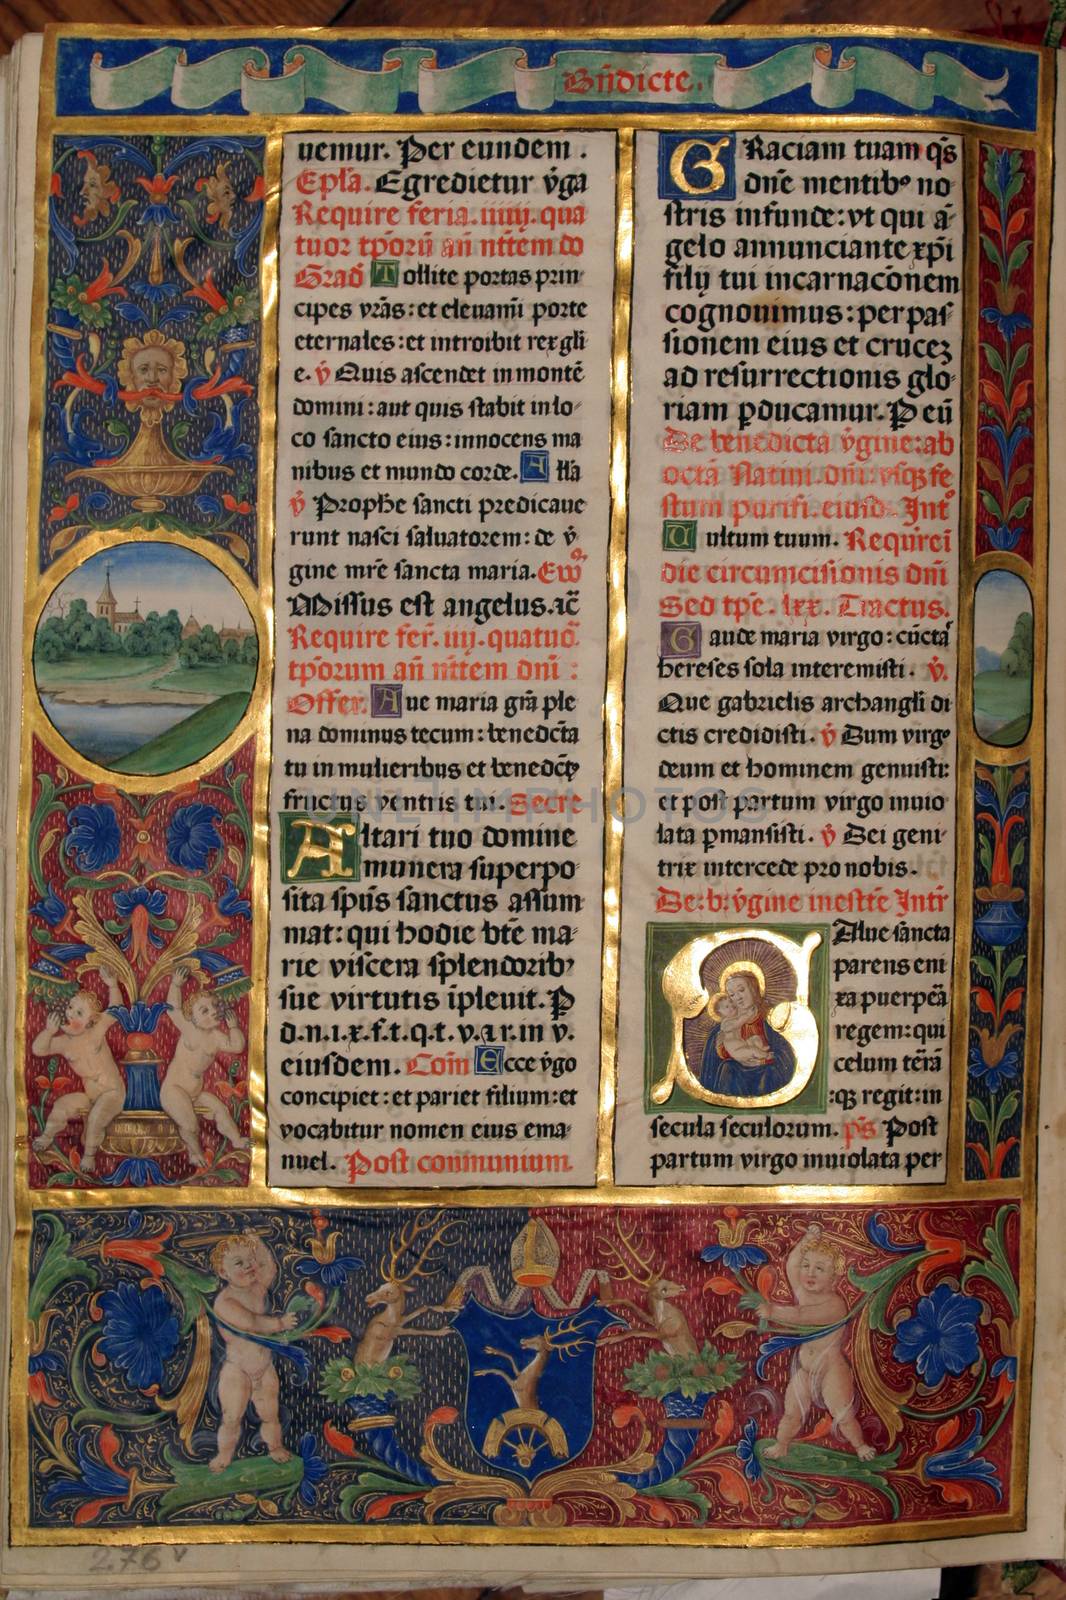 Bn̄dicte.
uemur. Per eundem.
Epl̄a. Egredietur v̄ga
Require feria. iiiij. qua
tuor tp̄orū an̄ nt̄tem do
Grad̄ Tollite portas prin-
cipes vr̄as: et eleuam̄i porte
eternales: et introibit rex gl̄i
e. v̄ Quis ascendet in montē
domini: aut quis stabit in lo-
co sancto eius: innocens ma
nibus et mundo corde. All̄a
v̄ Prophe sancti predicaue
runt nasci saluatorem: de v̄
gine mr̄e sancta maria. Ew̄
Missus est angelus. ⁊c̄
Require fer̄. iiij. quatuō
tp̄orum an̄ nt̄tem dn̄i :
Offer. Aue maria gr̄a ple
na dominus tecum: benedc̄ta
tu in mulieribus et benedc̄tꝰ
fructus ventris tui. Secre
Altari tuo domine
munera superpo-
sita sp̄us sanctus assum
mat: qui hodie bt̄e ma-
rie viscera splendoribꝰ
sue virtutis īpleuit. P
d.n.i.x.f.t.q.t.v.⁊ r.in v.
eiusdem. Com̄ Ecce v̄go
concipiet: et pariet filium: et
vocabitur nomen eius ema-
nuel. Post communium.
Graciam tuam qs̄
dn̄e mentibꝰ no-
stris infunde: vt qui ā-
gelo annunciante xp̄i
filij tui incarnacōnem
cognouimus: per pas-
sionem eius et crucez
ad resurrectionis glo-
riam ꝑducamur. P eū
De benedicta v̄gine: ab
octā Natiui. dn̄i: vsqꝫ fe
stum purifi. eiusd. Int̊
Uultum tuum. Require i
die circumcisionis dn̄i
Sed tp̄e. lxx. Tractus.
Gaude maria virgo: cūctas
hereses sola interemisti. v̄.
Que gabrielis archangeli di
ctis credidisti. v̄ Dum virgo
deum et hominem genuisti:
et post partum virgo inuio
lata ꝑmansisti. v̄ Dei geni-
trix intercede pro nobis.
De: b: v̄gine in estt̄e Intr̄
Salue sancta
parens eni
xa puerpeā
regem: qui
celum terā
:qꝫ regit: in
secula seculorum. ps̄ Post
partum virgo inuiolata per
276 v